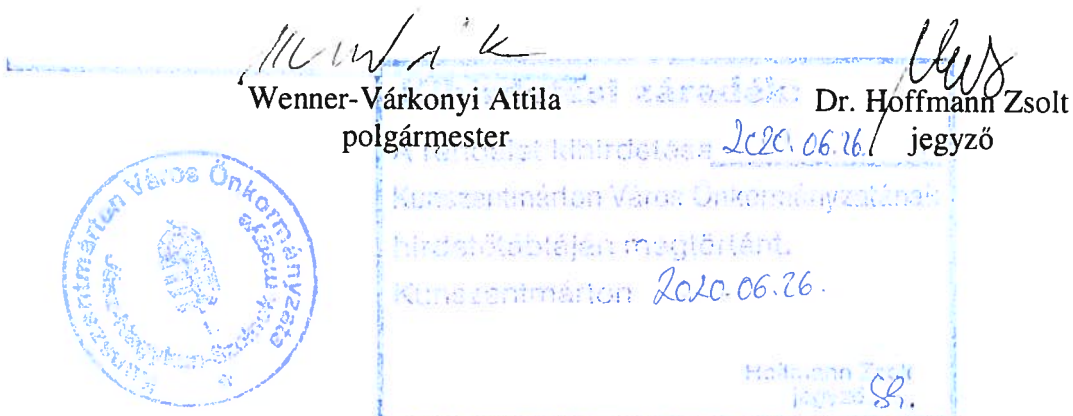 Wenner-Várkonyi Attila
polgármester
Dr. Hoffmann Zsolt
jegyző
záradék:
A rendelet kihirdetése 2020.06.26.
Kunszentmárton Város Önkormányzatának
hirdetőtábláján megtörtént.
Kunszentmárton 2020.06.26.
Hoffmann Zsolt
jegyző
Kunszentmárton Város Önkormányzata
Jász-Nagykun-Szolnok megye